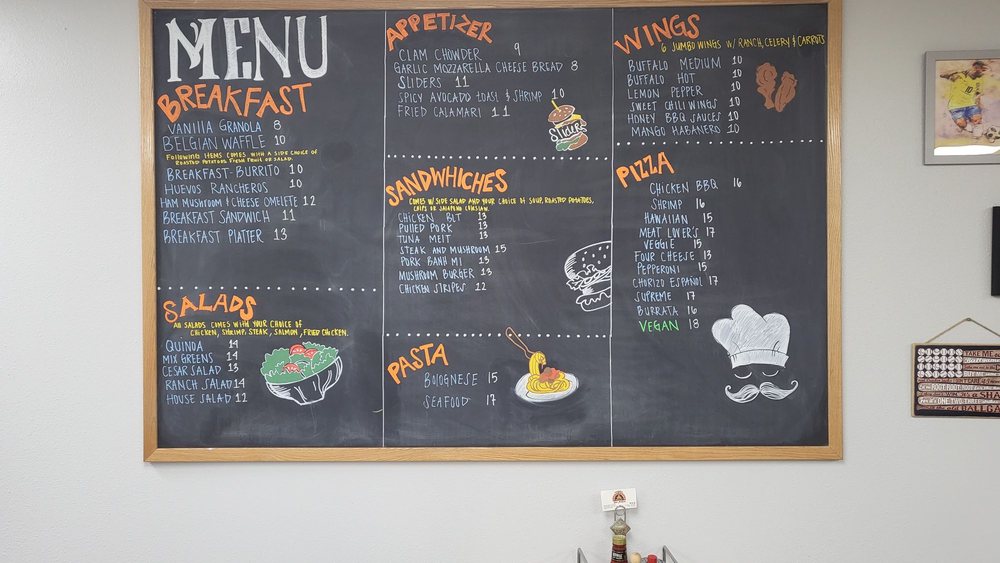 MENU
BREAKFAST
VANILLA GRANOLA 8
BELGIAN WAFFLE 10
FOLLOWING ITEMS COMES WITH A SIDE CHOICE OF
ROASTED POTATOES FRESH FRUIT OR SALAD.
BREAKFAST-BURRITO 10
HUEVOS RANCHEROS 10
HAM MUSHROOM & CHEESE OMELETE 12
BREAKFAST SANDWICH 11
BREAKFAST PLATTER 13
SALADS
All SALADS COMES WITH YOUR CHOICE OF
CHICKEN, SHRIMP, STEAK, SALMON, FRIED CHICKEN.
QUINOA 14
MIX GREENS 14
CESAR SALAD 13
RANCH SALAD 14
HOUSE SALAD 12
APPETIZER
CLAM CHOWDER 9
GARLIC MOZZARELLA CHEESE BREAD 8
SLIDERS 11
SPICY AVOCADO TOAST & SHRIMP 10
FRIED CALAMARI 11
Sliders
SANDWHICHES
COMES W/ SIDE SALAD AND YOUR CHOICE OF SOUP, ROASTED POTATOES,
CHIPS OR JALAPENO
CHICKEN BLT 13
PULLED PORK 13
TUNA MELT 13
STEAK AND MUSHROOM 15
PORK BANH MI 13
MUSHROOM BURGER 13
CHICKEN STRIPES 12
PASTA
BOLOGNESE 15
SEAFOOD 17
WINGS
6 JUMBO WINGS W/ RANCH, CELERY & CARROTS
BUFFALO MEDIUM 10
BUFFALO HOT 10
LEMON PEPPER 10
SWEET CHILI WINGS 10
HONEY BBQ SAUCES 10
MANGO HABANERO 10
PIZZA
CHICKEN BBQ 16
SHRIMP 16
HAWAIIAN 15
MEAT LOVER'S 17
VEGGIE 15
FOUR CHEESE 13
PEPPERONI 15
CHORIZO ESPAÑOL 17
SUPREME 17
BURRATA 16
VEGAN 18
TAKE ME
BUY ME
ROOT ROOT ROOT
SHA
ONE TWO THREE
BALLGA